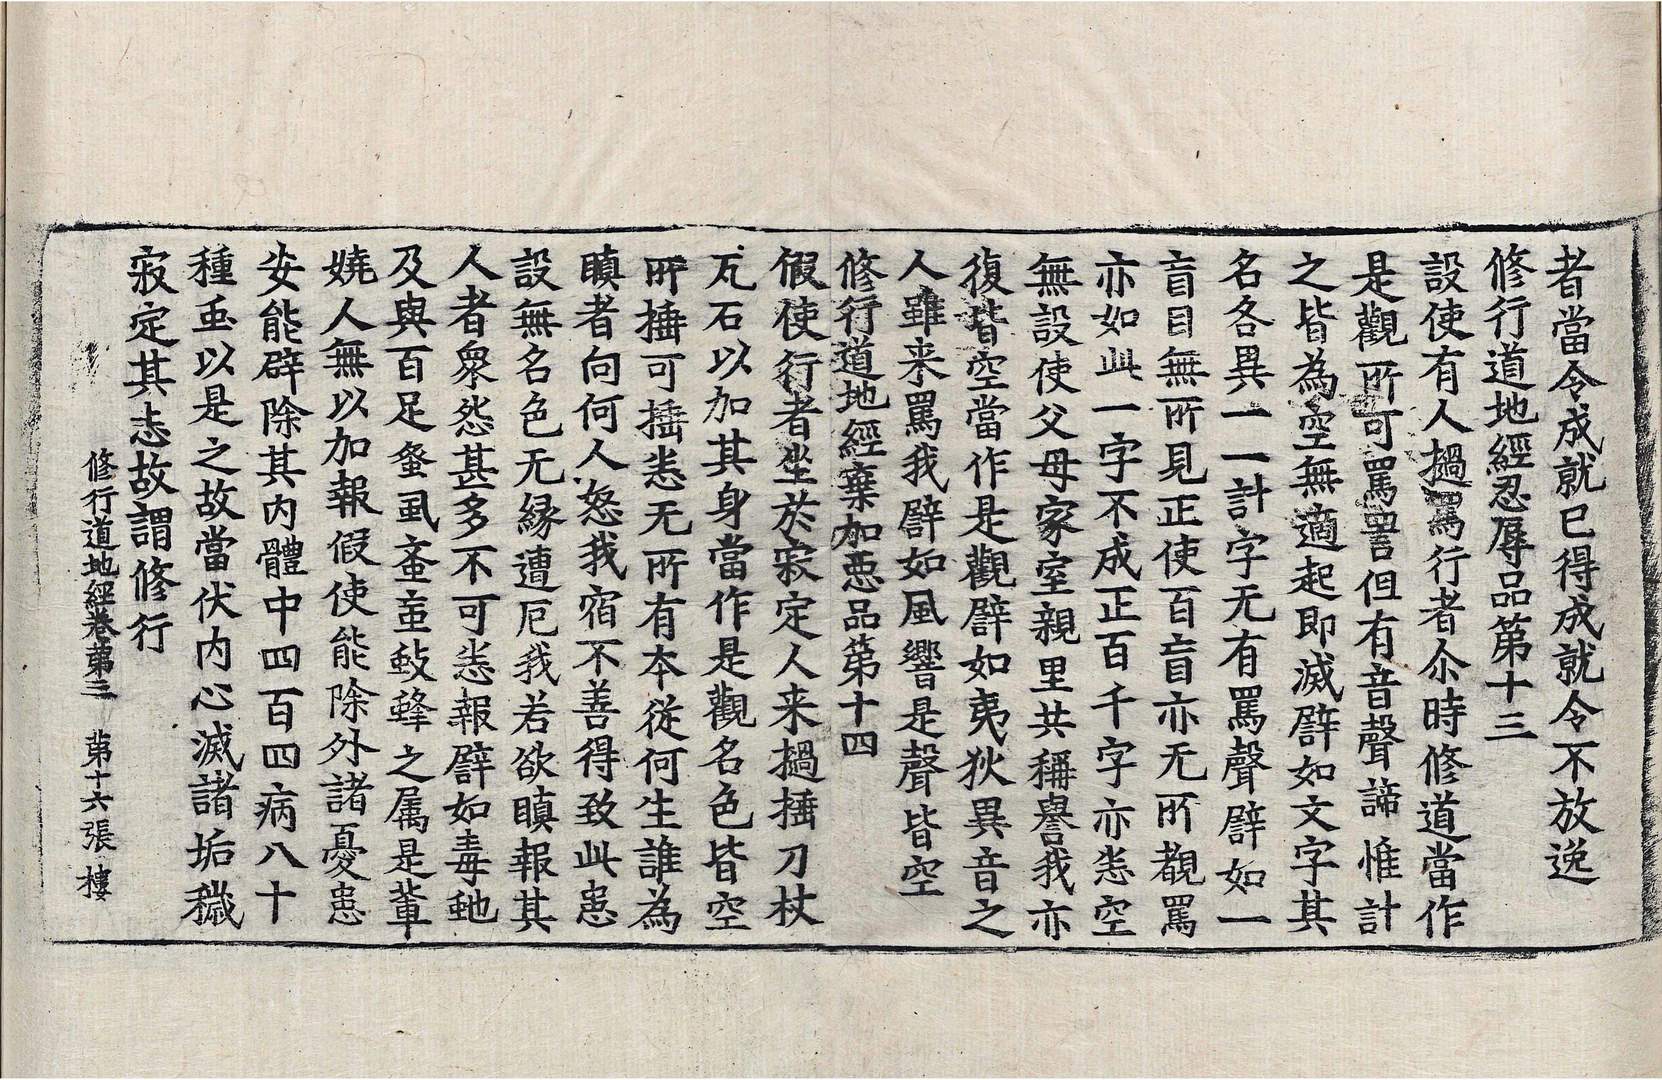 者當令成就已得成就令不放逸
修行道地經忍辱品第十三
設使有人撾罵行者尒時修道當作
是觀所可罵詈但有音聲諦惟計
之皆為空無適起即滅譬如文字其
名各異一一計字无有罵聲譬如一
盲目無所見正使百盲亦无所覩罵
亦如此一字不成正百千字亦悉空
無設使父母家室親里共稱譽我亦
復皆空當作是觀譬如夷狄異音之
人雖来罵我譬如風響是聲皆空
修行道地經棄加惡品第十四
假使行者坐於寂定人来撾捶刀杖
瓦石以加其身當作是觀名色皆空
所捶可捶悉无所有本從何生誰為
瞋者向何人怒我宿不善得致此患
設無名色无緣遭厄我若欲瞋報其
人者衆怨甚多不可悉報譬如毒虵
及與百足蚤虱蚉䖝蚑蜂之属是輩
嬈人無以加報假使能除外諸憂患
安能辟除其内體中四百四病八十
種䖝以是之故當伏内心滅諸垢穢
寂定其志故謂修行
修行道地經卷第三　第十六張　樓